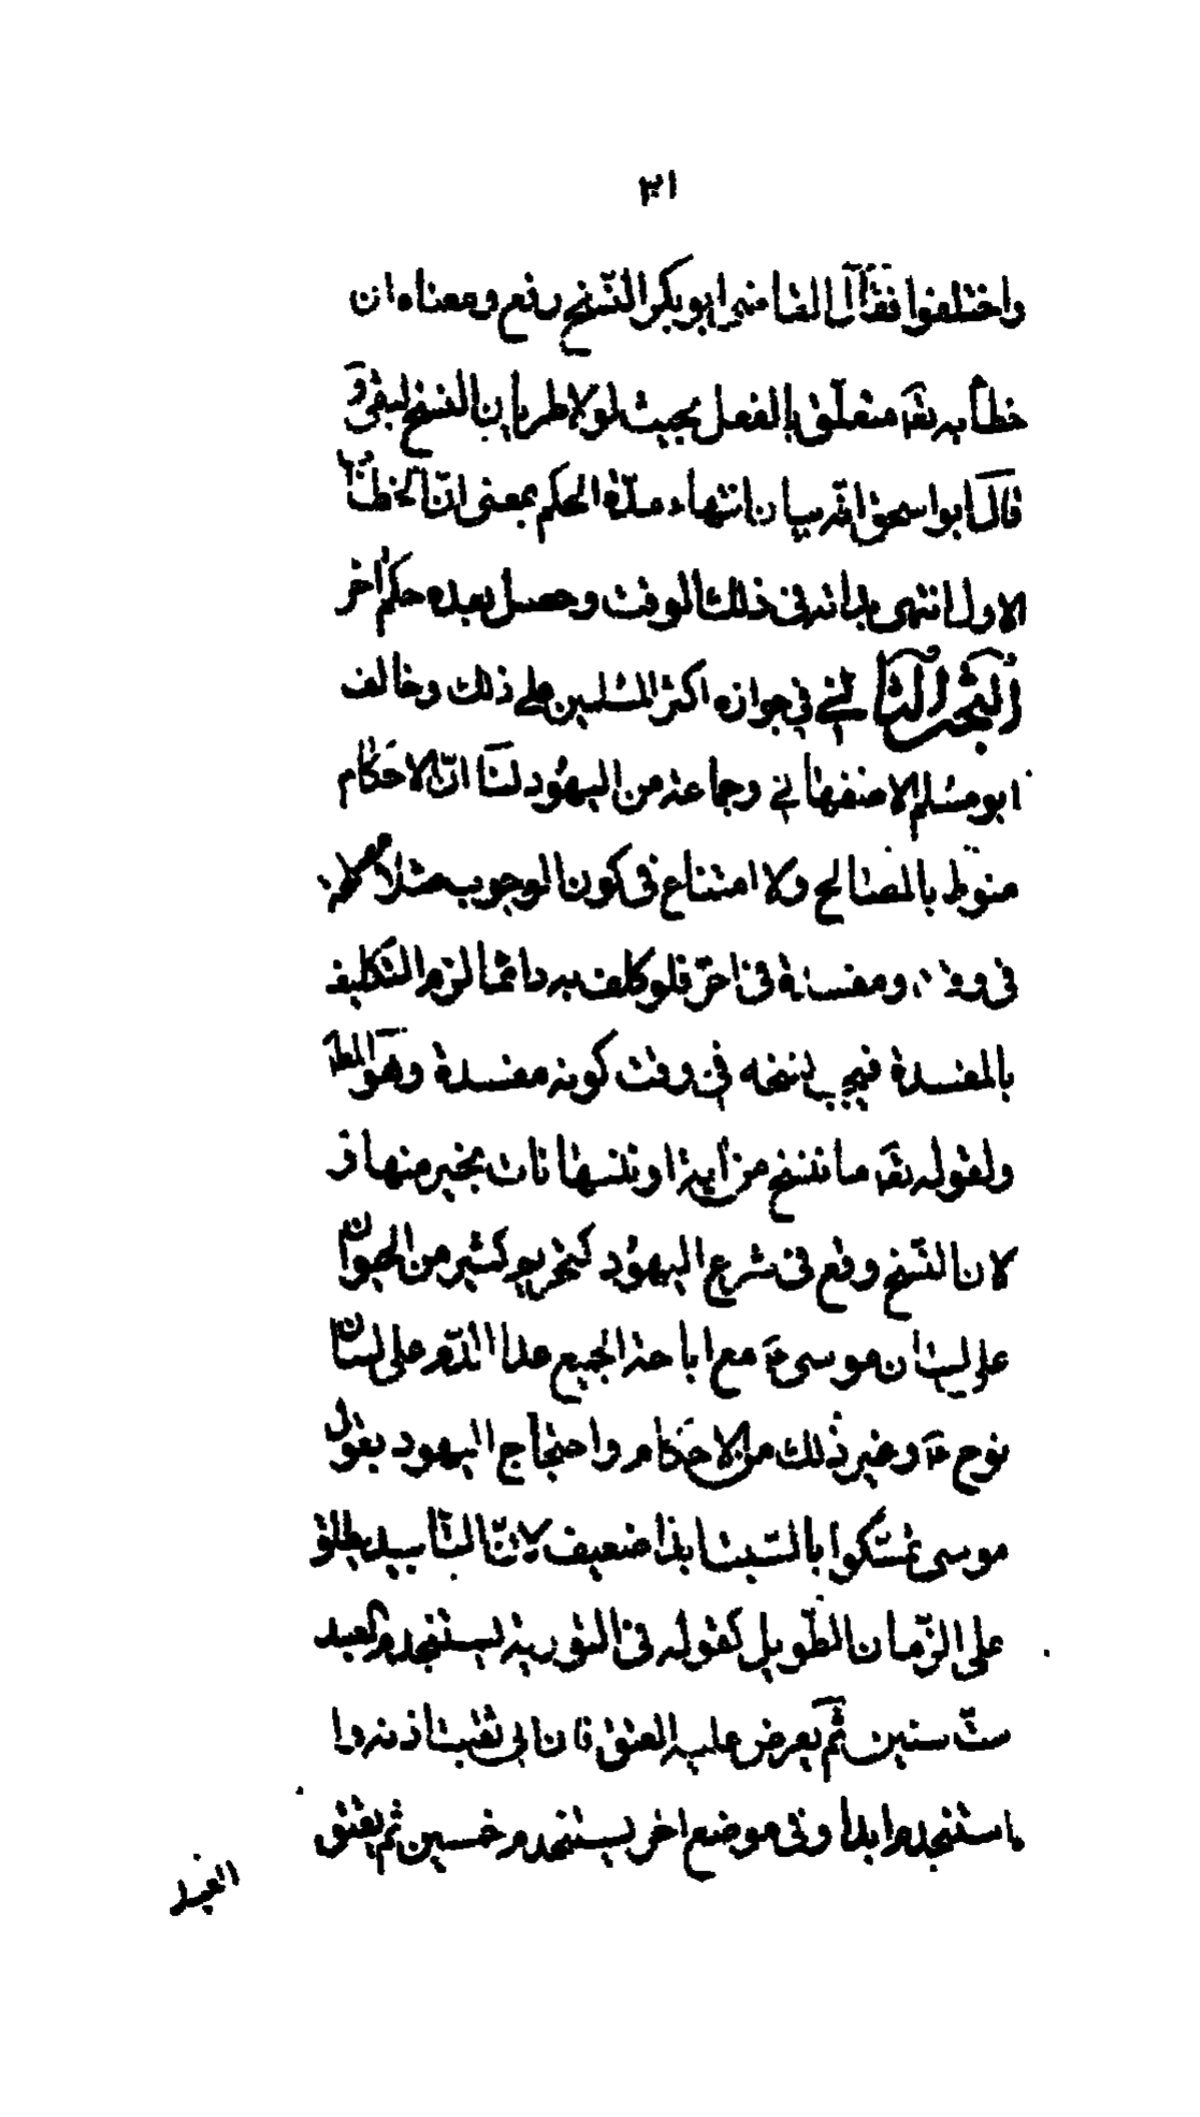 ٣١
واختلفوا فقال القاضى ابو بكر النّسخ رفع ومعناه ان
خطابه تعَ متعلّق بالفعل بحيث لولا طريان النسخ لبقى وَ
قال ابو اسحق انّه بيان انتهاء مدّة الحكم بمعنى انّ الخطاب
الاول انتهى بذاته فى ذلك الوقت وحصل بعده حكم اخر
البحث الثانى فى جوازه اكثر المسلمين على ذلك وخالف
ابو مسلم الاصفهانى وجماعة من اليهود لنا انّ الاحكام
منوط بالمصالح ولا امتناع فى كون الوجوب مثلا مصلحة
فى وقت ومفسدة فى اخر فلو كلف به دائما لزم التكليف
بالمفسدة فيجب نسخه فى وقت كونه مفسدة وهو المط
ولقوله تعَ ما ننسخ من اية او ننسها نات بخير منها و
لان النّسخ وقع فى شرع اليهود كتحريم كثير من الحيوان
على لسان موسى عَ مع اباحة الجميع عدا الدّم على لسان
نوح عَ وغير ذلك من الاحكام واحتجاج اليهود بقول
موسى تمسّكوا بالسّبت ابدا ضعيف لانّ التّابيد يطلق
على الزّمان الطّويل كقوله فى التورية يستخدم العبد
ستّ سنين ثم يعرض عليه العتق فان ابى ثقبت اذنه وا
استخدم ابدا وفى موضع اخر يستخدم خمسين ثم يعتق
العبد